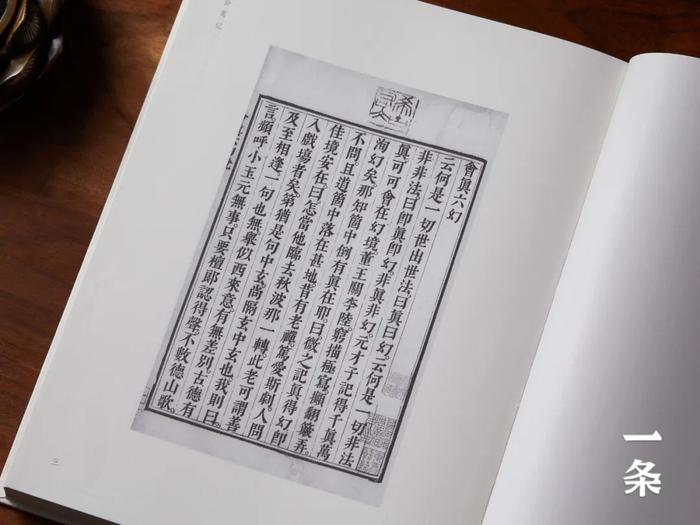 會眞六幻
云何是一切世出世法。曰眞曰幻。云何是一切非法
非非法。曰卽眞卽幻。非眞非幻。元才子記得千眞萬
眞。可可會在幻境。董王關李陸窮描極寫。攧翻簸弄。
洵幻矣。那知箇中倒有眞在耶。曰微之記眞得幻。卽
不問。且道箇中落在甚地。昔有老禪篤愛斯劇。人問
佳境安在。曰怎當他臨去秋波那一轉。此老可謂善
入戲場者矣。第猶是句中玄。尚隔玄中玄也。我則曰。
及至相逢一句也無。舉似西來意。有無差別。古德有
言。頻呼小玉元無事。只要檀郎認得聲。不數德山歌。
一条